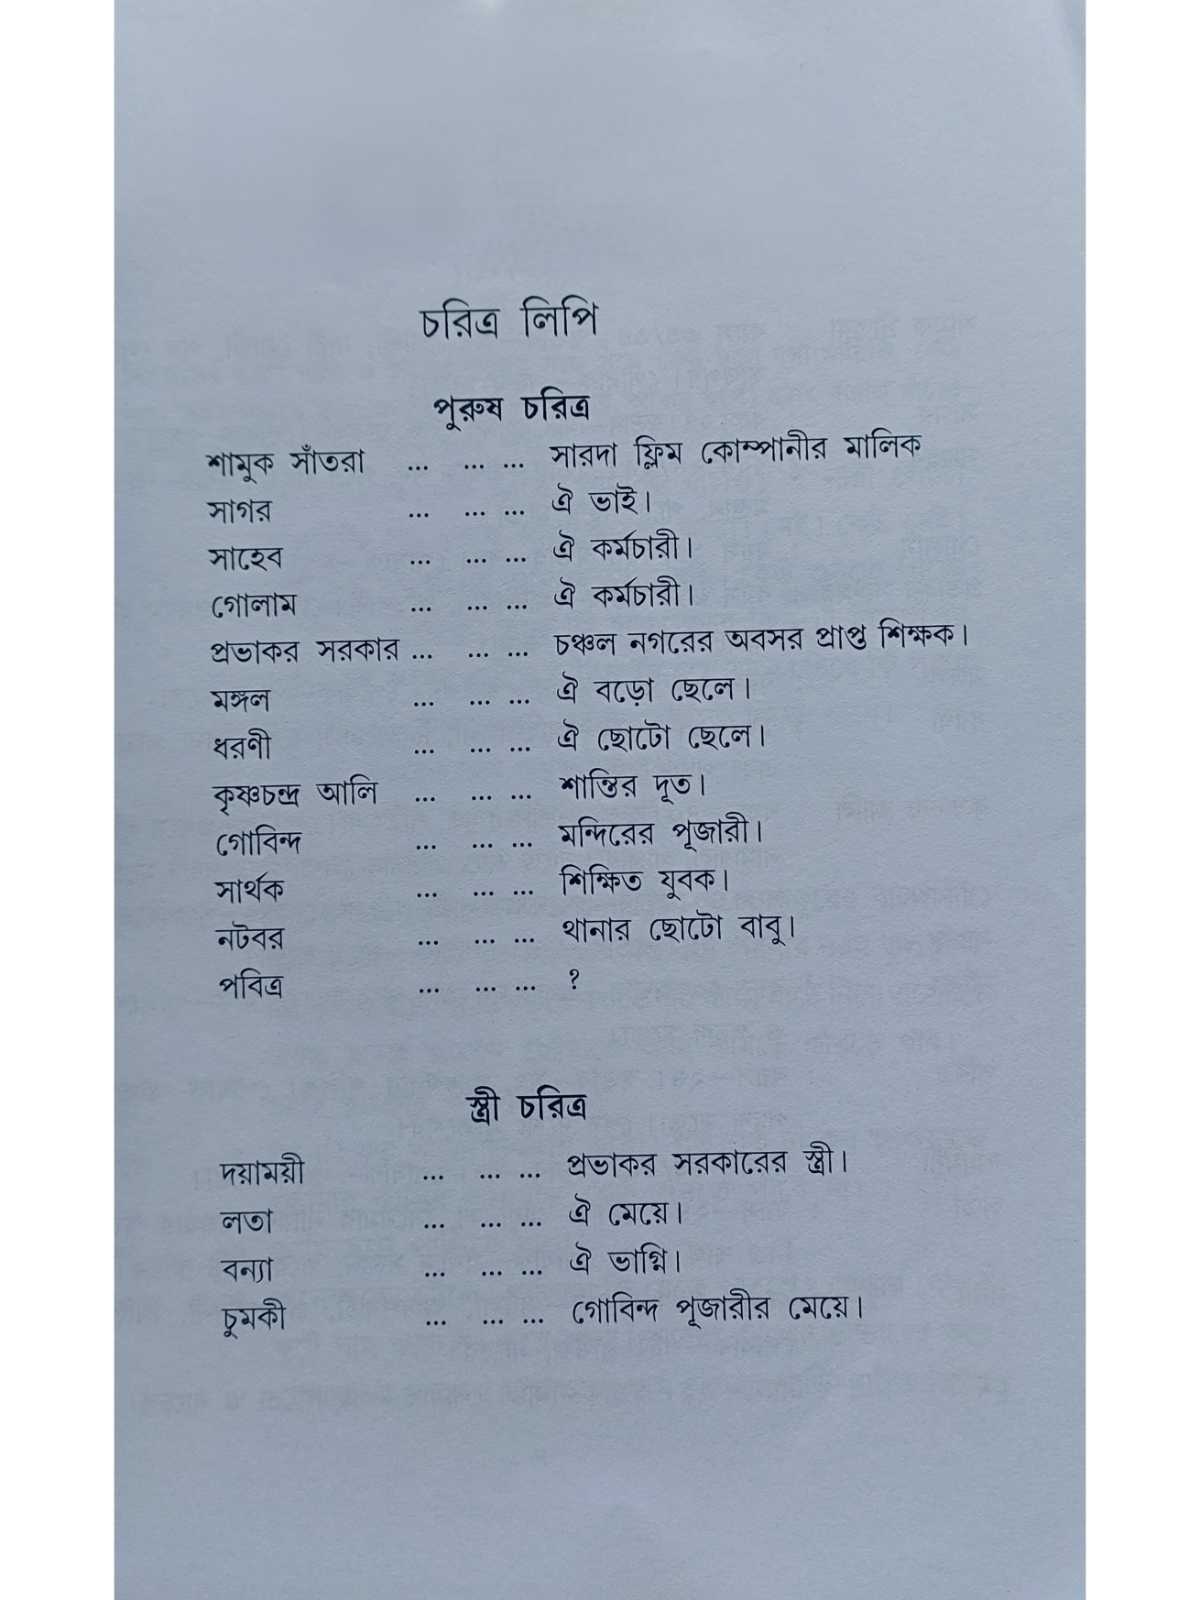 চরিত্র লিপি
পুরুষ চরিত্র
শামুক সাঁতরা ... ... ... সারদা ফ্লিম কোম্পানীর মালিক
সাগর ... ... ... ঐ ভাই।
সাহেব ... ... ... ঐ কর্মচারী।
গোলাম ... ... ... ঐ কর্মচারী।
প্রভাকর সরকার ... ... ... চঞ্চল নগরের অবসর প্রাপ্ত শিক্ষক।
মঙ্গল ... ... ... ঐ বড়ো ছেলে।
ধরণী ... ... ... ঐ ছোটো ছেলে।
কৃষ্ণচন্দ্র আলি ... ... ... শান্তির দূত।
গোবিন্দ ... ... ... মন্দিরের পূজারী।
সার্থক ... ... ... শিক্ষিত যুবক।
নটবর ... ... ... থানার ছোটো বাবু।
পবিত্র ... ... ... ?
স্ত্রী চরিত্র
দয়াময়ী ... ... ... প্রভাকর সরকারের স্ত্রী।
লতা ... ... ... ঐ মেয়ে।
বন্যা ... ... ... ঐ ভাগ্নি।
চুমকী ... ... ... গোবিন্দ পূজারীর মেয়ে।